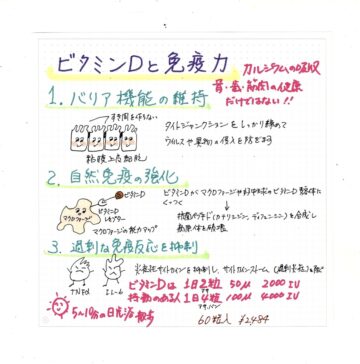 ビタミンDと免疫力
カルシウムの吸収
骨・歯・筋肉の健康
だけではない!!
1. バリア機能の維持
すき間を作らない
タイトジャンクションをしっかり締めて
ウイルスや異物の侵入を防ぎます
粘膜上皮細胞
2. 自然免疫の強化
ビタミンD
ビタミンD
レセプター
マクロファージ
マクロファージの能力アップ
ビタミンDがマクロファージや好中球のビタミンD受容体に
くっつく
抗菌ペプチド(カテリジン、ディフェンシン)を合成し
病原体を破壊
3. 過剰な免疫反応を抑制
TNFα
IL-6
炎症性サイトカインを抑制し、サイトカインストーム(過剰
ビタミンDは 1日2粒 50μ 2000 IU
持病のある人 1日4粒 100μ 4000 IU
5〜10分の日光浴
散歩
60粒入 ¥2484